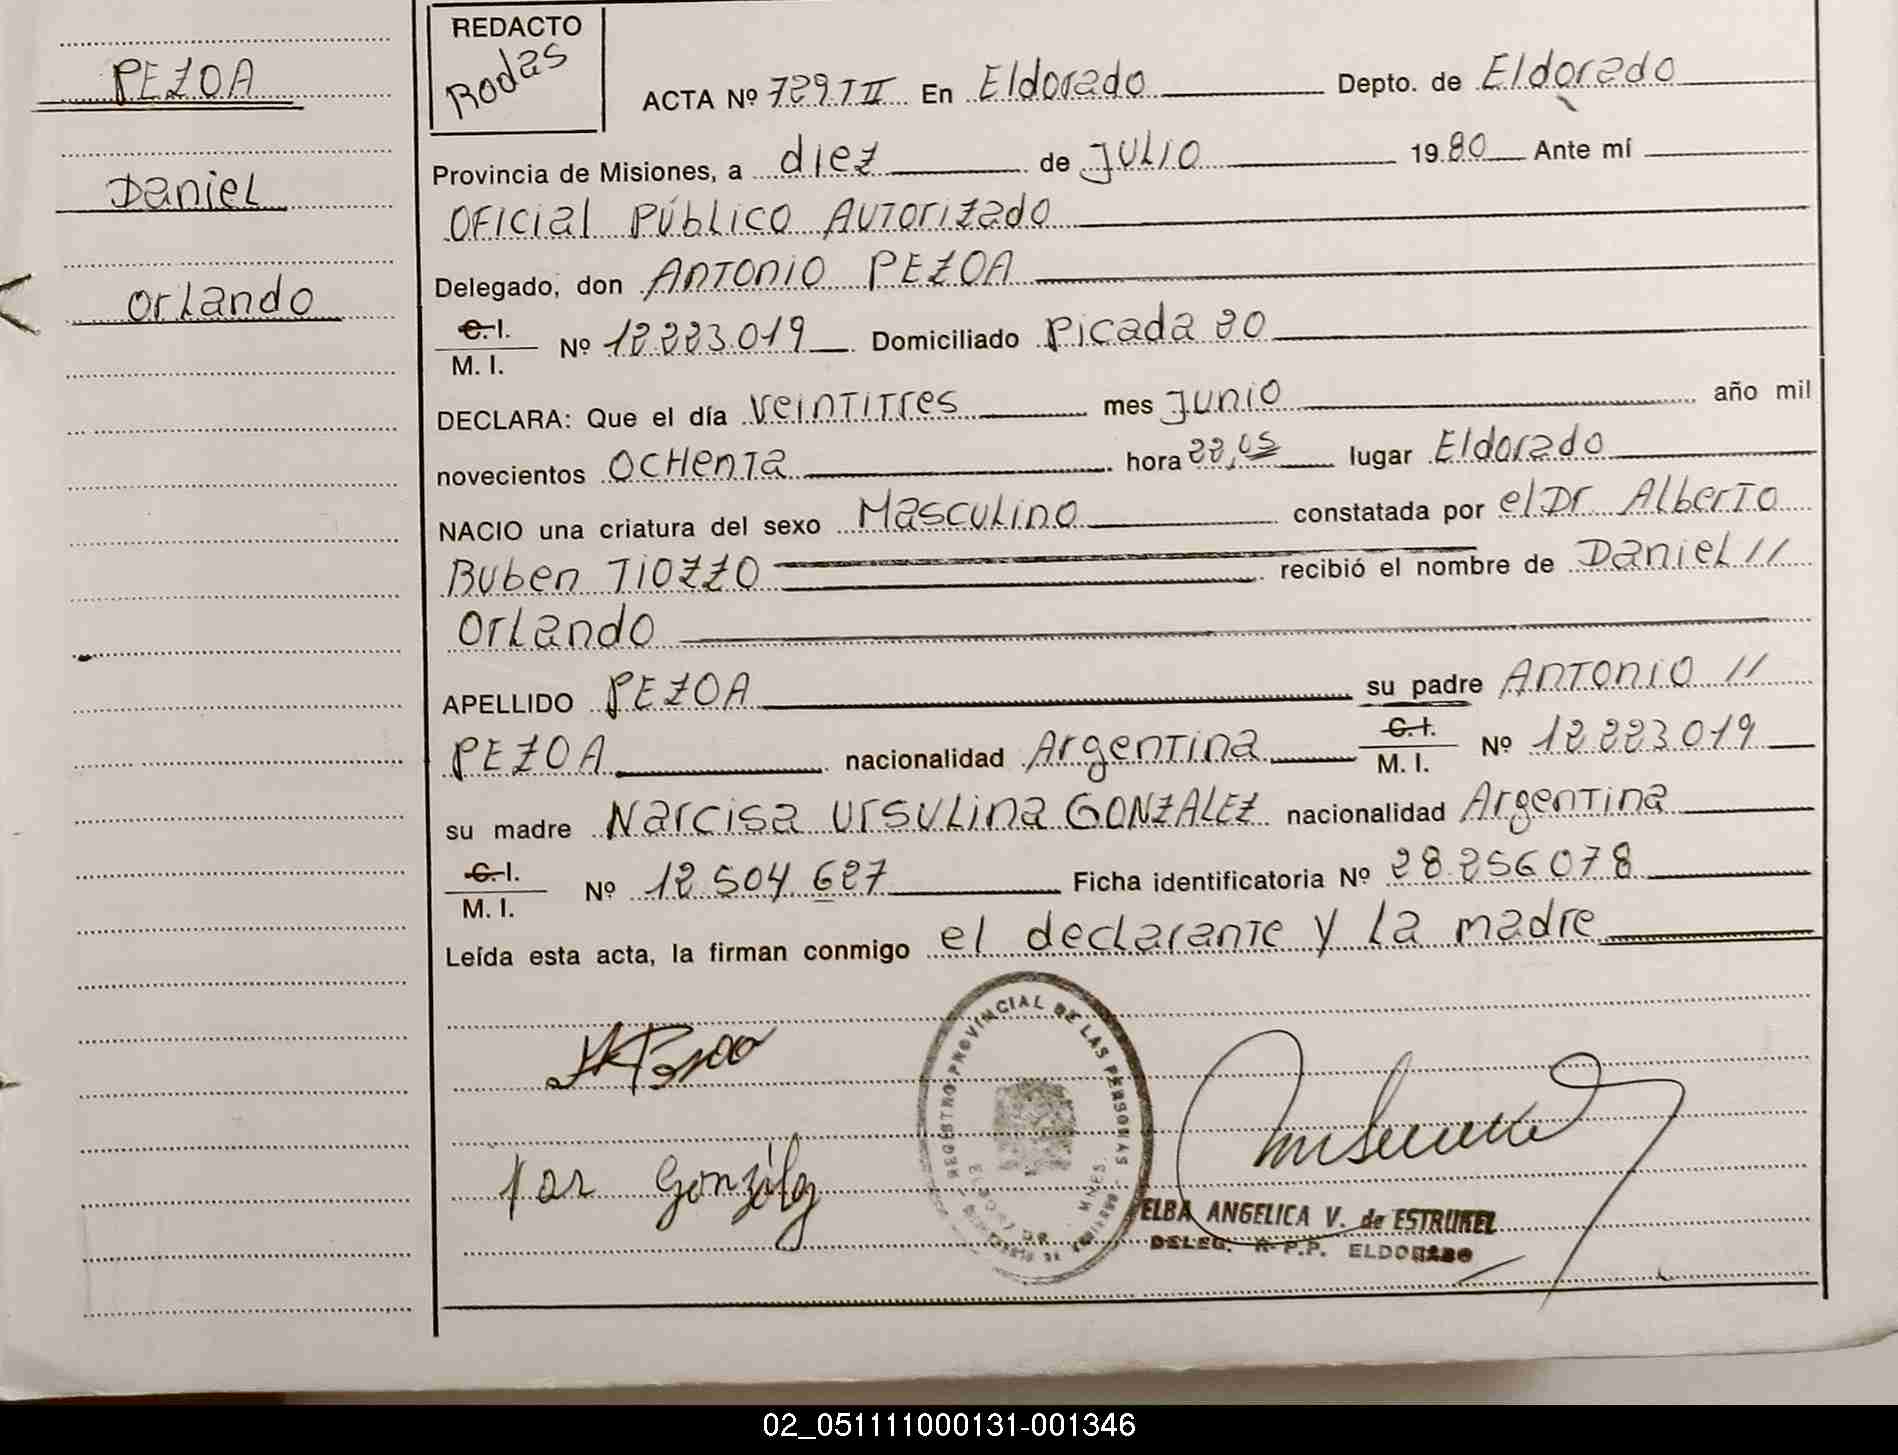 PEZOA
Daniel
Orlando
REDACTO
Rodas
ACTA Nº 729 T II En Eldorado Depto. de Eldorado
Provincia de Misiones, a diez de JULIO 1980 Ante mí
OFICIAL PÚBLICO AUTORIZADO
Delegado, don ANTONIO PEZOA
C.I. M. I. Nº 12.223.019 Domiciliado Picada 20
DECLARA: Que el día veintitres mes JUNIO año mil
novecientos OCHENTA hora 22,05 lugar Eldorado
NACIO una criatura del sexo Masculino constatada por el Dr Alberto
Ruben TIOZZO recibió el nombre de Daniel //
Orlando
APELLIDO PEZOA su padre ANTONIO //
PEZOA nacionalidad Argentina C.I. M. I. Nº 12.223.019
su madre Narcisa Ursulina GONZALEZ nacionalidad Argentina
C.I. M. I. Nº 12.504.627 Ficha identificatoria Nº 28.256.078
Leída esta acta, la firman conmigo el declarante y la madre
REGISTRO PROVINCIAL DE LAS PERSONAS
ELBA ANGELICA V. de ESTRUKEL
DELEG. R.P.P. ELDORADO
02_051111000131-001346